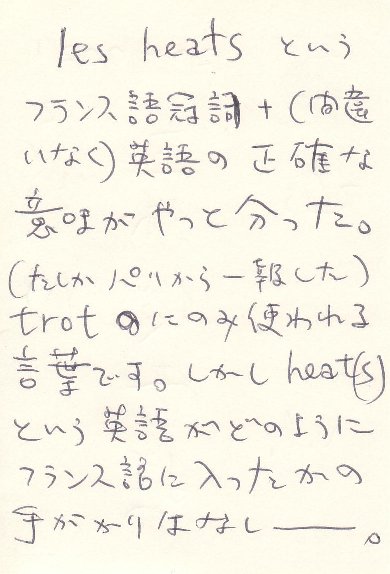 les heats という
フランス語冠詞 + (間違
いなく) 英語の 正確な
意味がやっと分った。
(たしかパリから一報した)
trot のにのみ使われる
言葉です。しかし heat(s)
という英語がどのように
フランス語に入ったかの
手がかりはなし——。